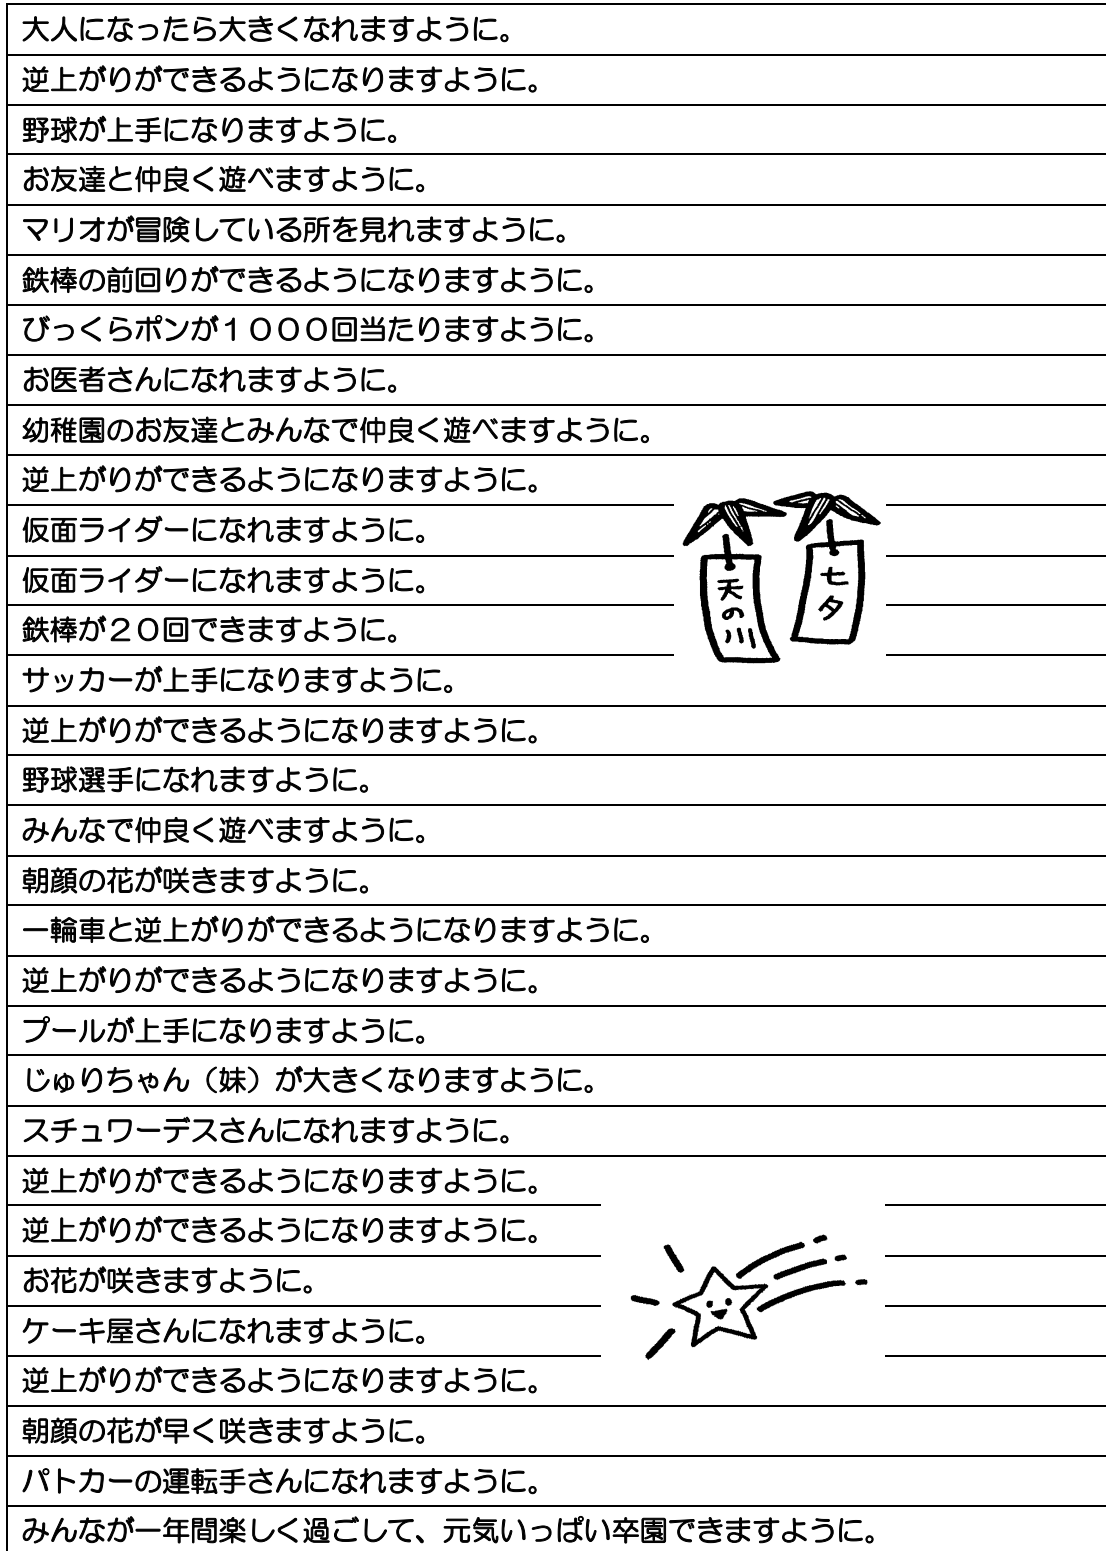 大人になったら大きくなれますように。
逆上がりができるようになりますように。
野球が上手になりますように。
お友達と仲良く遊べますように。
マリオが冒険している所を見れますように。
鉄棒の前回りができるようになりますように。
びっくらポンが１０００回当たりますように。
お医者さんになれますように。
幼稚園のお友達とみんなで仲良く遊べますように。
逆上がりができるようになりますように。
仮面ライダーになれますように。
仮面ライダーになれますように。
鉄棒が２０回できますように。
サッカーが上手になりますように。
七夕
天の川
逆上がりができるようになりますように。
野球選手になれますように。
みんなで仲良く遊べますように。
朝顔の花が咲きますように。
一輪車と逆上がりができるようになりますように。
逆上がりができるようになりますように。
プールが上手になりますように。
じゅりちゃん（妹）が大きくなりますように。
スチュワーデスさんになれますように。
逆上がりができるようになりますように。
逆上がりができるようになりますように。
お花が咲きますように。
ケーキ屋さんになれますように。
逆上がりができるようになりますように。
朝顔の花が早く咲きますように。
パトカーの運転手さんになれますように。
みんなが一年間楽しく過ごして、元気いっぱい卒園できますように。